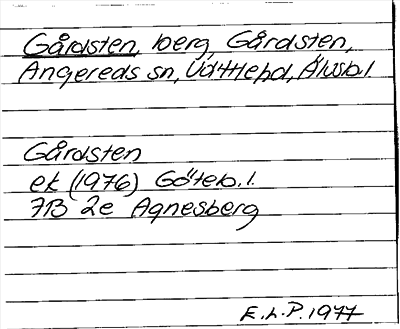 Gårdsten, berg, Gårdsten,
Angereds sn, Vättlehd, Älvsb.l
Gårdsten
ek (1976) Göteb.l.
7B 2e Agnesberg
E.L.P. 1977